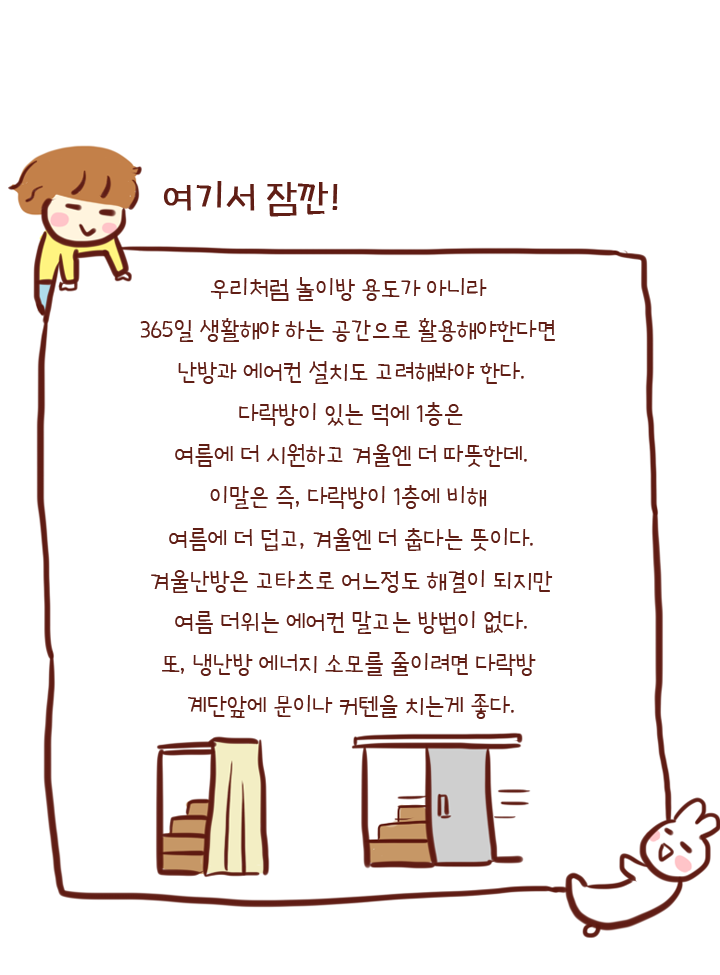 여기서 잠깐!
우리처럼 놀이방 용도가 아니라
365일 생활해야 하는 공간으로 활용해야한다면
난방과 에어컨 설치도 고려해봐야 한다.
다락방이 있는 덕에 1층은
여름에 더 시원하고 겨울엔 더 따뜻한데.
이말은 즉, 다락방이 1층에 비해
여름에 더 덥고, 겨울엔 더 춥다는 뜻이다.
겨울난방은 고타츠로 어느정도 해결이 되지만
여름 더위는 에어컨 말고는 방법이 없다.
또, 냉난방 에너지 소모를 줄이려면 다락방
계단앞에 문이나 커텐을 치는게 좋다.